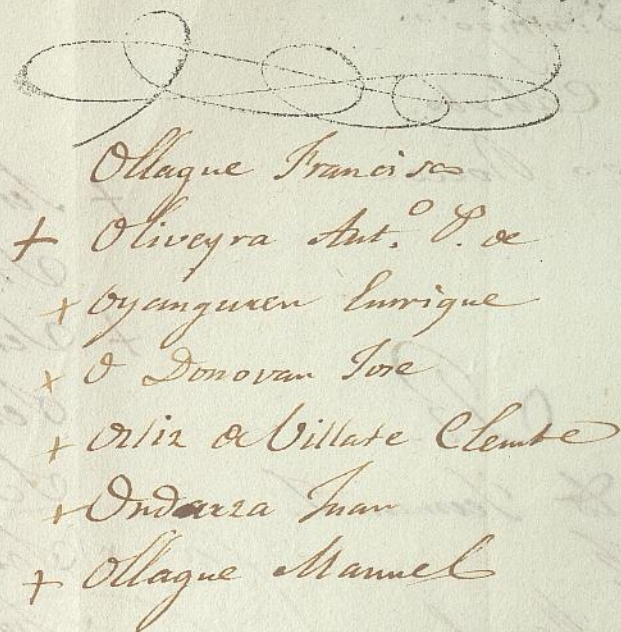 Ollague Francisco
+ Oliveyra Ant.º P. de
+ Oyanguren Enrrique
+ O Donovan Jose
+ Ortiz de Villate Clemte
+ Ondarza Juan
+ Ollague Manuel